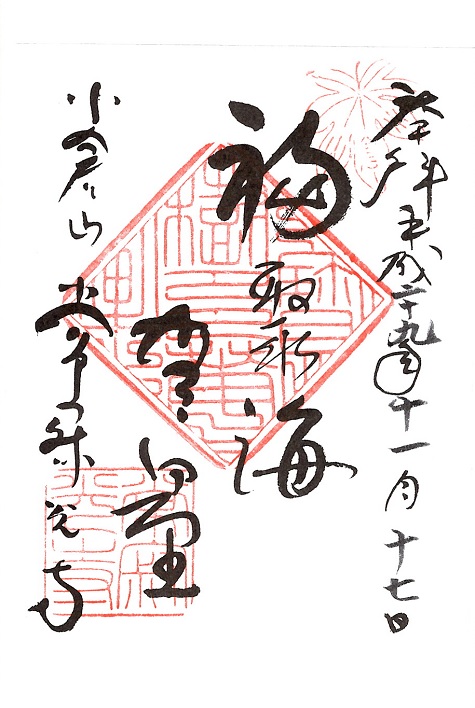 奉拝 平成二十九年十一月十七日
福聚海
無量
小倉山 常寂光寺